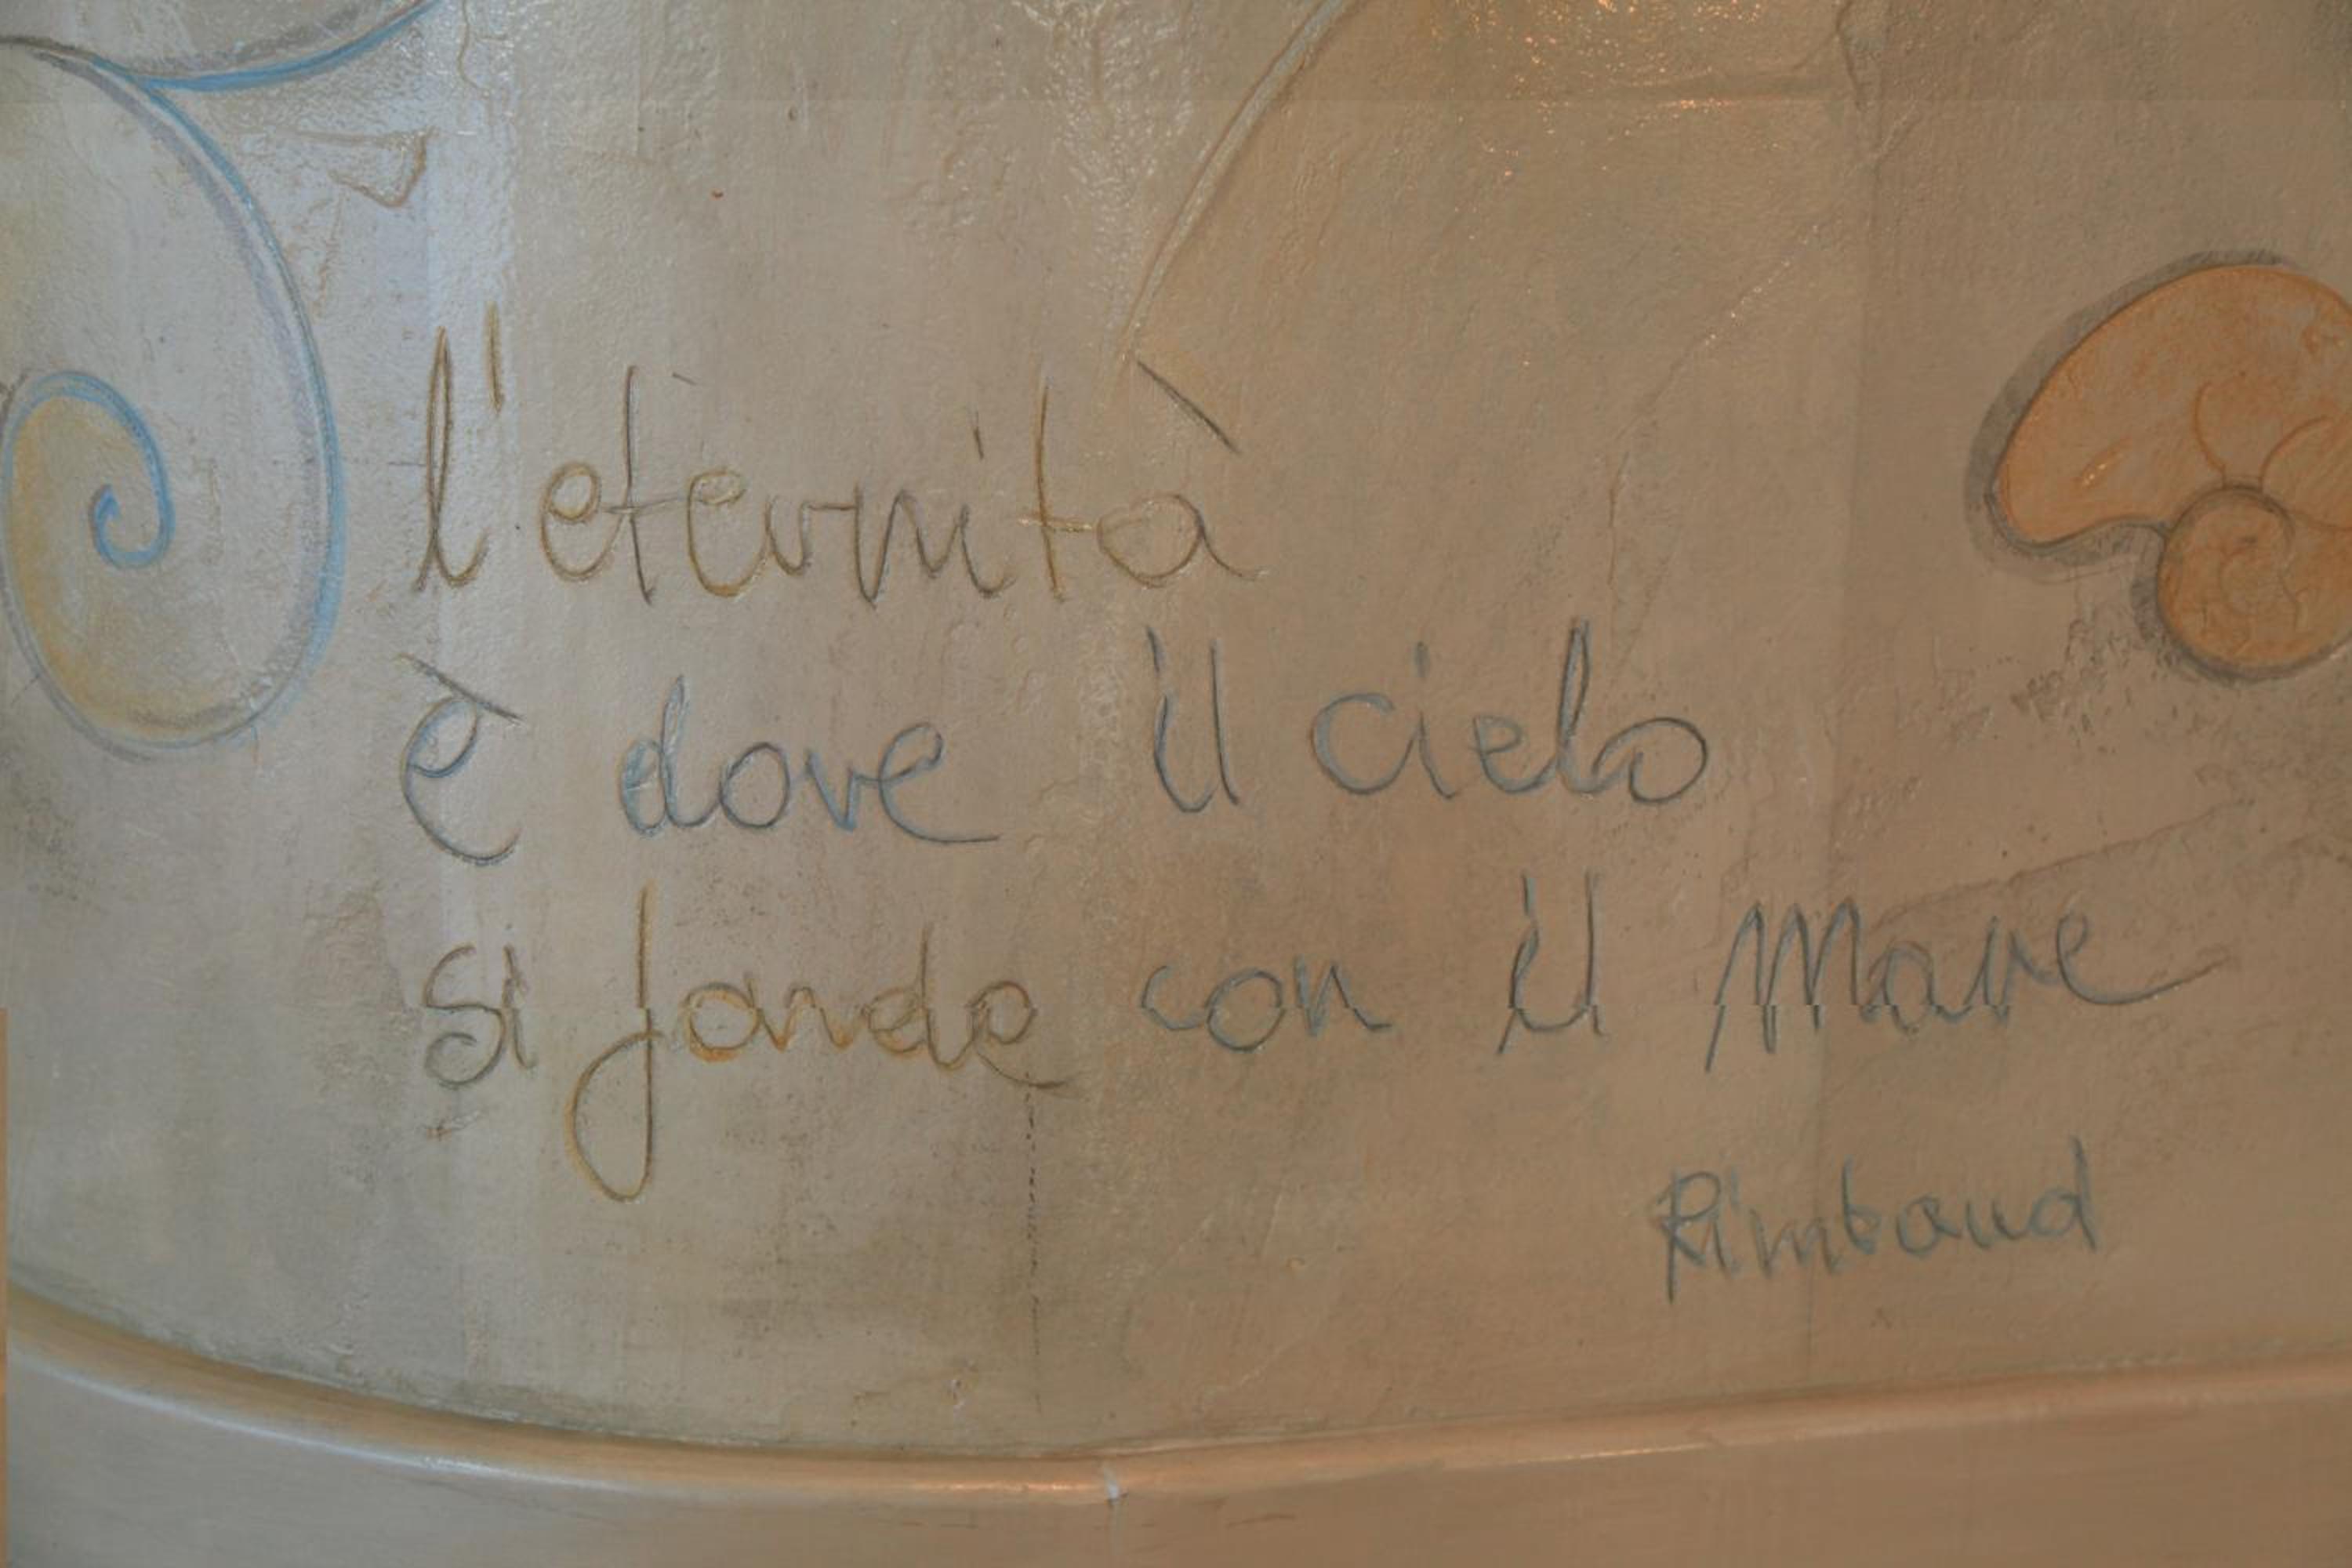 l'eternità
è dove il cielo
si fonde con il mare
Rimbaud